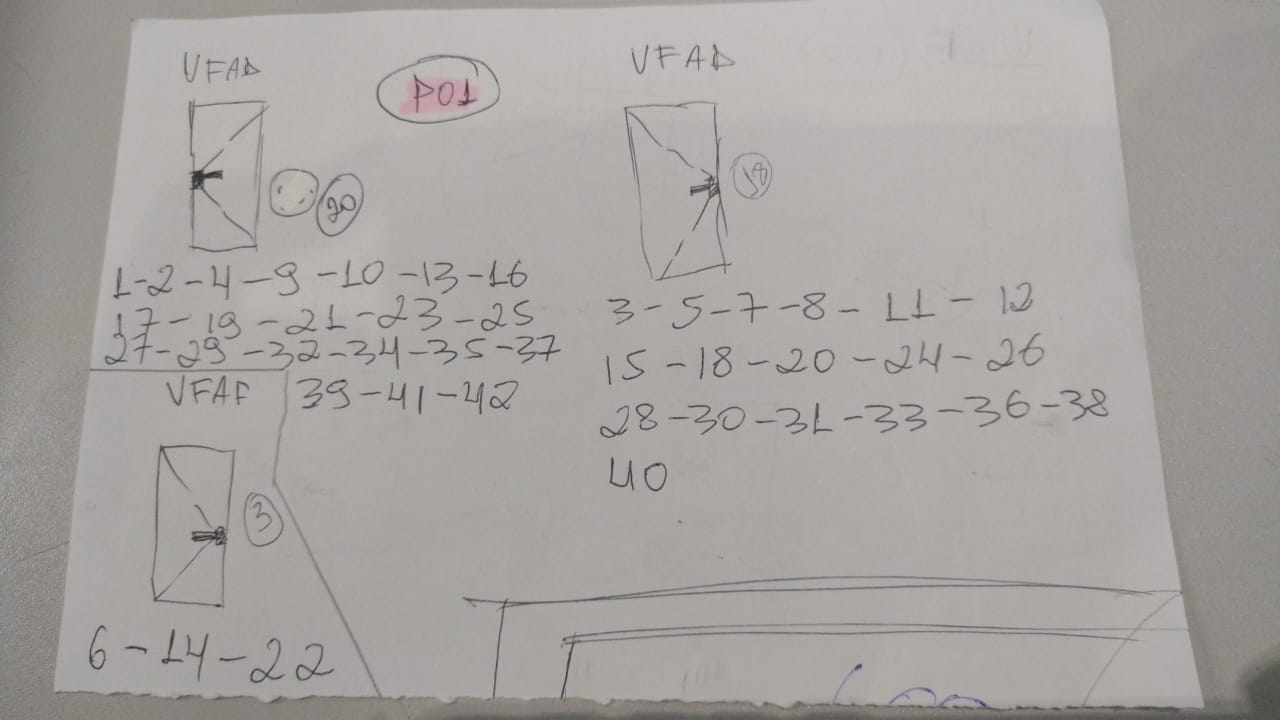 VFAD
P01
20
1-2-4-9-10-13-16
17-19-21-23-25
27-29-32-34-35-37
39-41-42
VFAD
18
3-5-7-8-11-12
15-18-20-24-26
28-30-31-33-36-38
40
VFAF
3
6-14-22